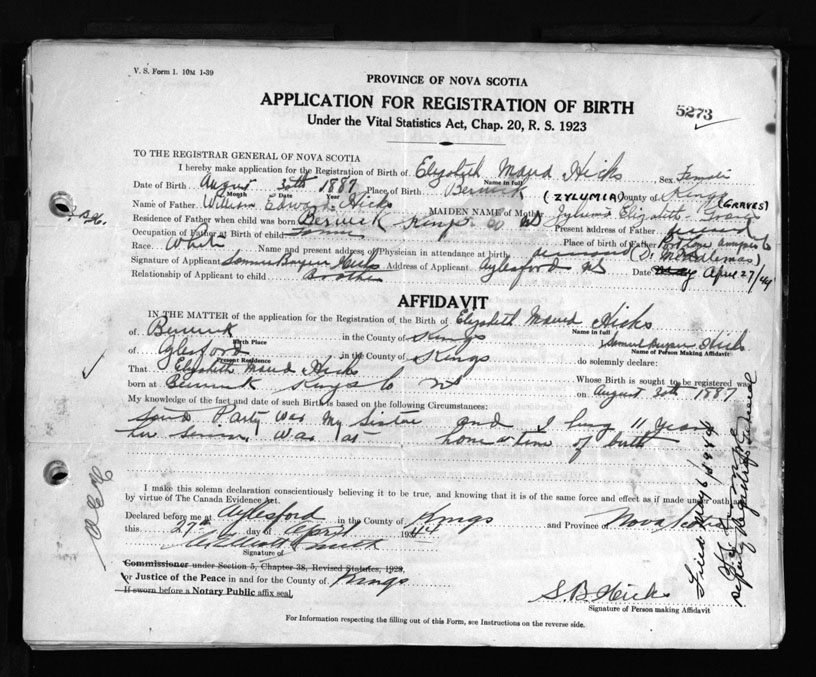 V. S. Form 1. 10M 1-39
PROVINCE OF NOVA SCOTIA
APPLICATION FOR REGISTRATION OF BIRTH
5273
Under the Vital Statistics Act, Chap. 20, R. S. 1923
TO THE REGISTRAR GENERAL OF NOVA SCOTIA
I hereby make application for the Registration of Birth of Elizabeth Maud Hicks Sex Female
Name in full
Date of Birth August 30th 1887 Place of Birth Berwick County of Kings
Month Year
(ZYLUMIA) (GRAVES)
Name of Father William Edward Hicks MAIDEN NAME of Mother Zylumia Elizabeth Graves
Residence of Father when child was born Berwick Kings Co NS Present address of Father deceased
Occupation of Father at Birth of child Farmer Place of birth of Father
Race. White Name and present address of Physician in attendance at birth deceased
Signature of Applicant Hicks Address of Applicant Aylesford NS Date April 27/44
Relationship of Applicant to child Brother
AFFIDAVIT
IN THE MATTER of the application for the Registration of the Birth of Elizabeth Maud Hicks
Name in full
of Berwick in the County of Kings
Birth Place
of Aylesford in the County of Kings Hicks
Present Residence Name of Person Making Affidavit
do solemnly declare:
That Elizabeth Maud Hicks Whose Birth is sought to be registered was
born at Berwick Kings Co NS on August 30th 1887
My knowledge of the fact and date of such Birth is based on the following Circumstances:
Said Party was My Sister and I being 11 Years
her Senior was at home at time of birth
I make this solemn declaration conscientiously believing it to be true, and knowing that it is of the same force and effect as if made under oath
by virtue of The Canada Evidence Act.
Declared before me at Aylesford in the County of Kings and Province of Nova Scotia
this 27th day of April 1944
Smith
Signature of
Commissioner under Section 5, Chapter 38, Revised Statutes, 1923,
or Justice of the Peace in and for the County of Kings
If sworn before a Notary Public affix seal.
S. B. Hicks
Signature of Person making Affidavit
For Information respecting the filling out of this Form, see Instructions on the reverse side.